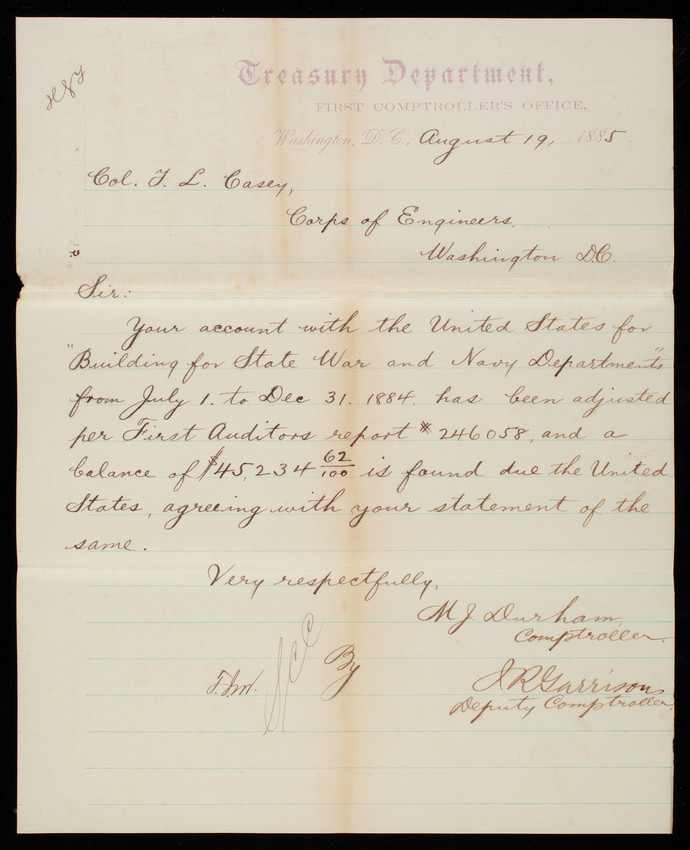 Treasury Department,
FIRST COMPTROLLER'S OFFICE,
Washington, D. C., August 19, 1885.
Col. T. L. Casey,
Corps of Engineers.
Washington D.C.
Sir:
Your account with the United States for
"Building for State War and Navy Departments"
from July 1. to Dec 31. 1884. has been adjusted
per First Auditors report # 246058, and a
balance of $45,234 62/100 is found due the United
States, agreeing with your statement of the
same.
Very respectfully,
M J Durham,
Comptroller.
By
J R Garrison
Deputy Comptroller